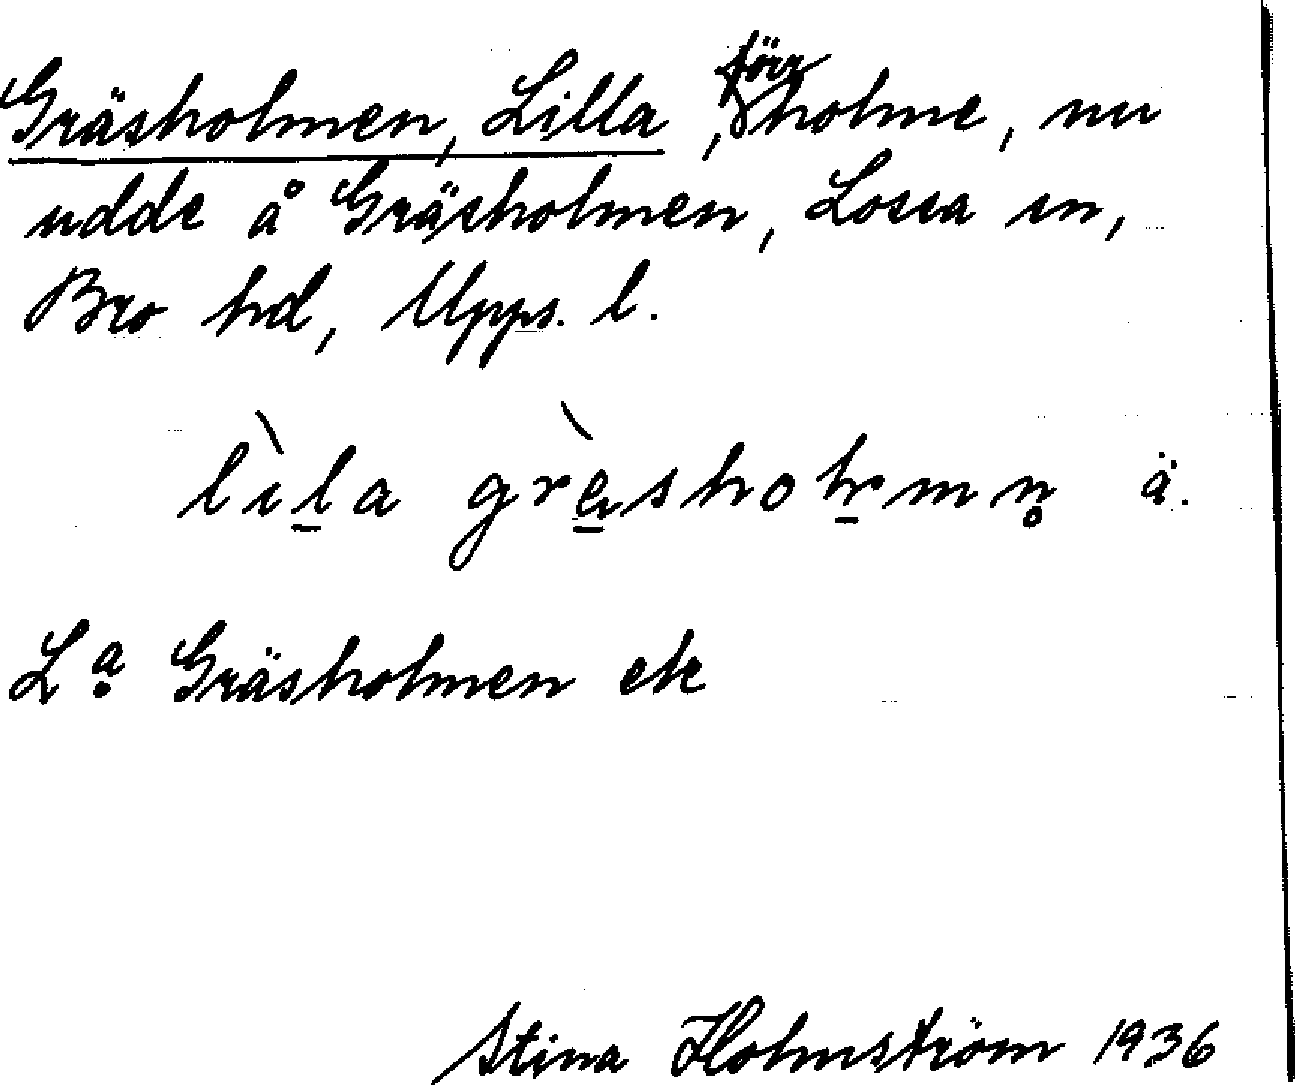 Gräsholmen, Lilla, förr holme, nu
udde å Gräsholmen, Lossa sn,
Bro hd, Upps. l.
lìla grèshoḻmn̥ ä.
La Gräsholmen ek
Stina Holmström 1936